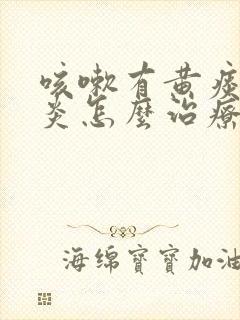 咳嗽有黄痰
炎怎麽治療
海绵寶寶加油